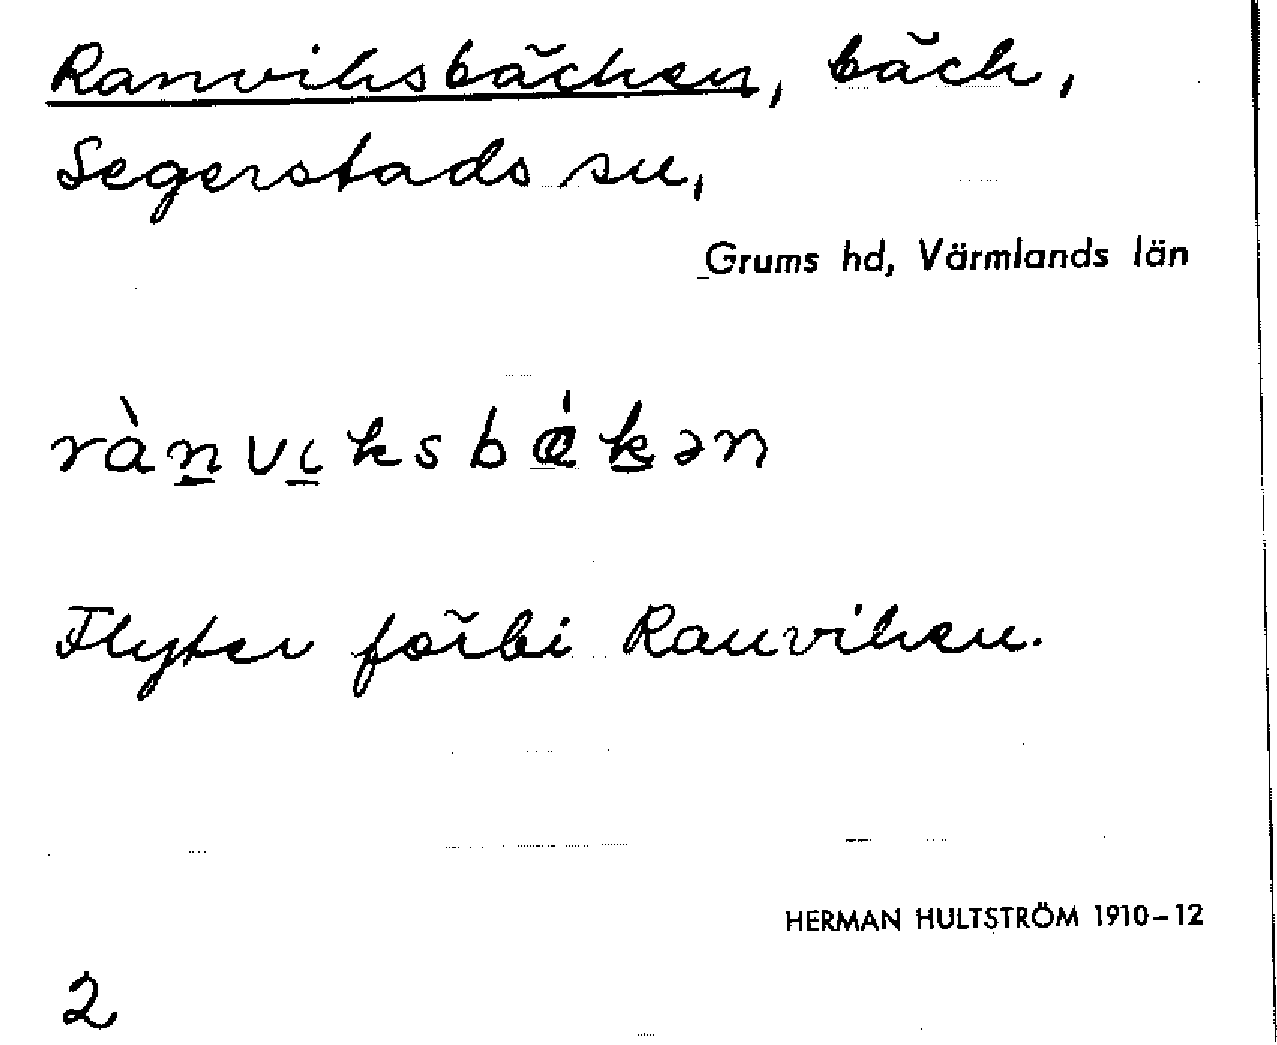 Ranviksbäcken, bäck,
Segerstads sn,
Grums hd, Värmlands län
ràn̲vi̲ksbǽk̲ən
Flyter förbi Ranviken.
HERMAN HULTSTRÖM 1910–12
2